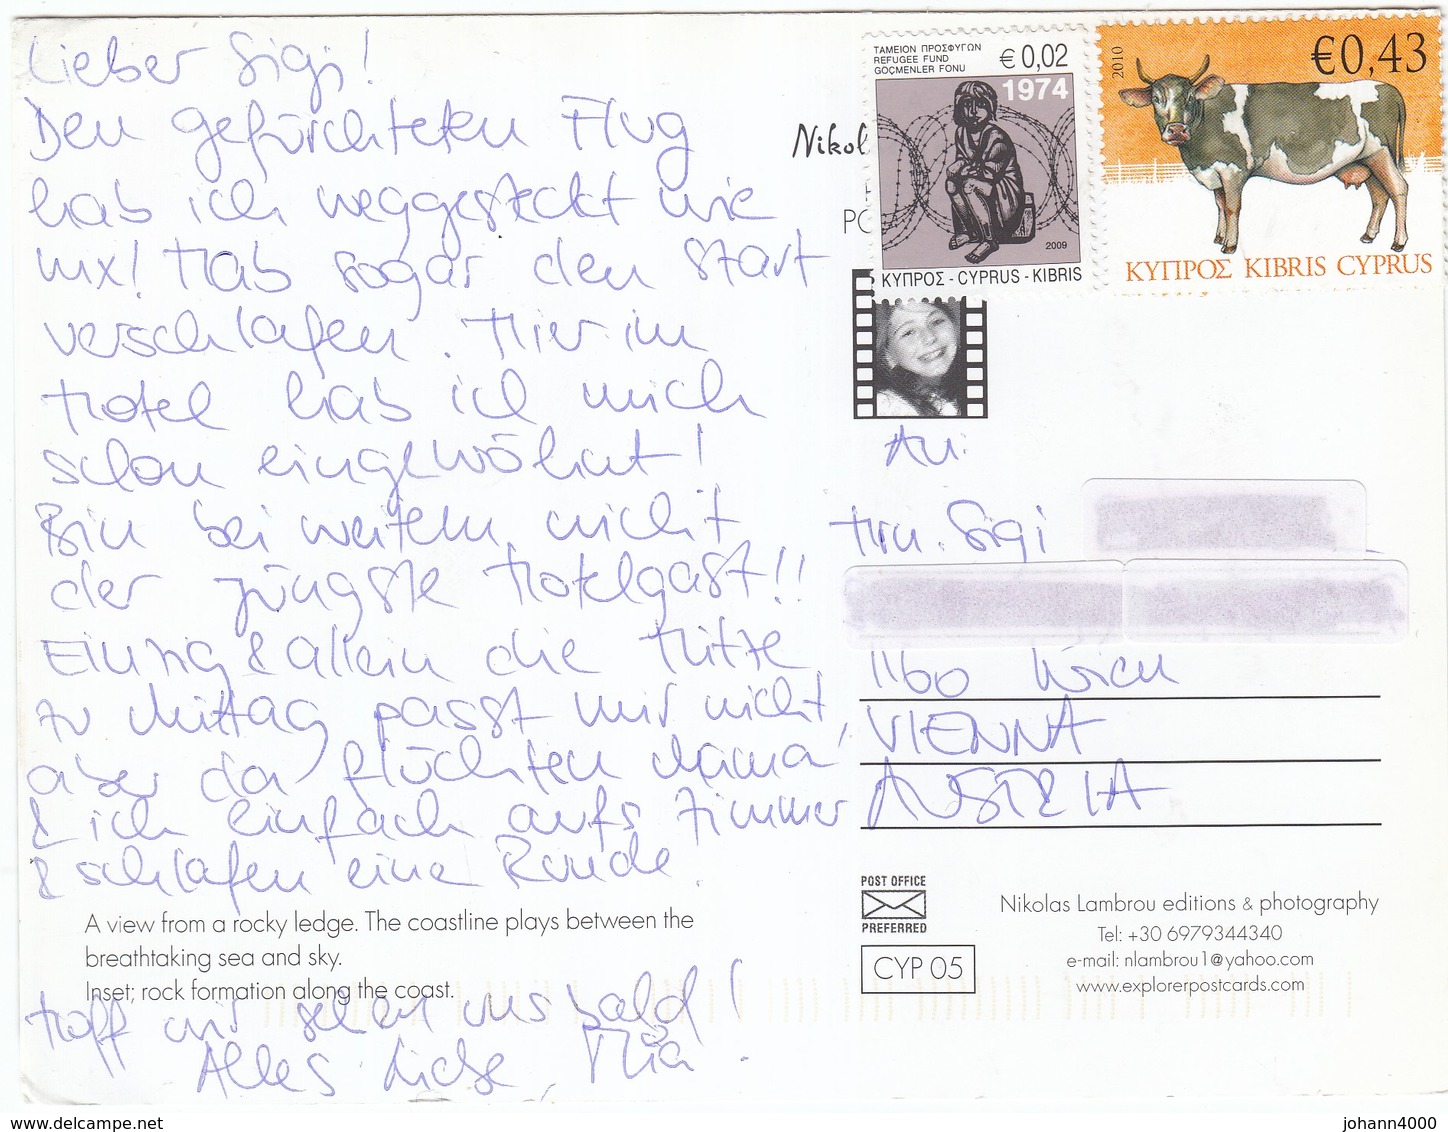 Lieber Sigi!
Den gefürchteten Flug
hab ich weggesteckt wie
nix! Hab sogar den Start
verschlafen. Hier im
Hotel hab ich mich
schon eingewöhnt!
Bin bei weitem nicht
der jüngste Hotelgast!!
Einzig & allein die Hitze
zu Mittag passt mir nicht,
aber da flüchten Mama
& ich einfach aufs Zimmer
& schlafen eine Runde.
A view from a rocky ledge. The coastline plays between the
breathtaking sea and sky.
Inset; rock formation along the coast.
Hoff wir sehen uns bald!
Alles Liebe,
ΤΑΜΕΙΟΝ ΠΡΟΣΦΥΓΩΝ
REFUGEE FUND
GÖÇMENLER FONU
€0,02
1974
2009
ΚΥΠΡΟΣ - CYPRUS - KIBRIS
2010
€0,43
ΚΥΠΡΟΣ KIBRIS CYPRUS
Nikol
PO
An:
Hrn. Sigi
1160 Wien
VIENNA
AUSTRIA
POST OFFICE
PREFERRED
CYP 05
Nikolas Lambrou editions & photography
Tel: +30 6979344340
e-mail: nlambrou1@yahoo.com
www.explorerpostcards.com
www.delcampe.net
johann4000